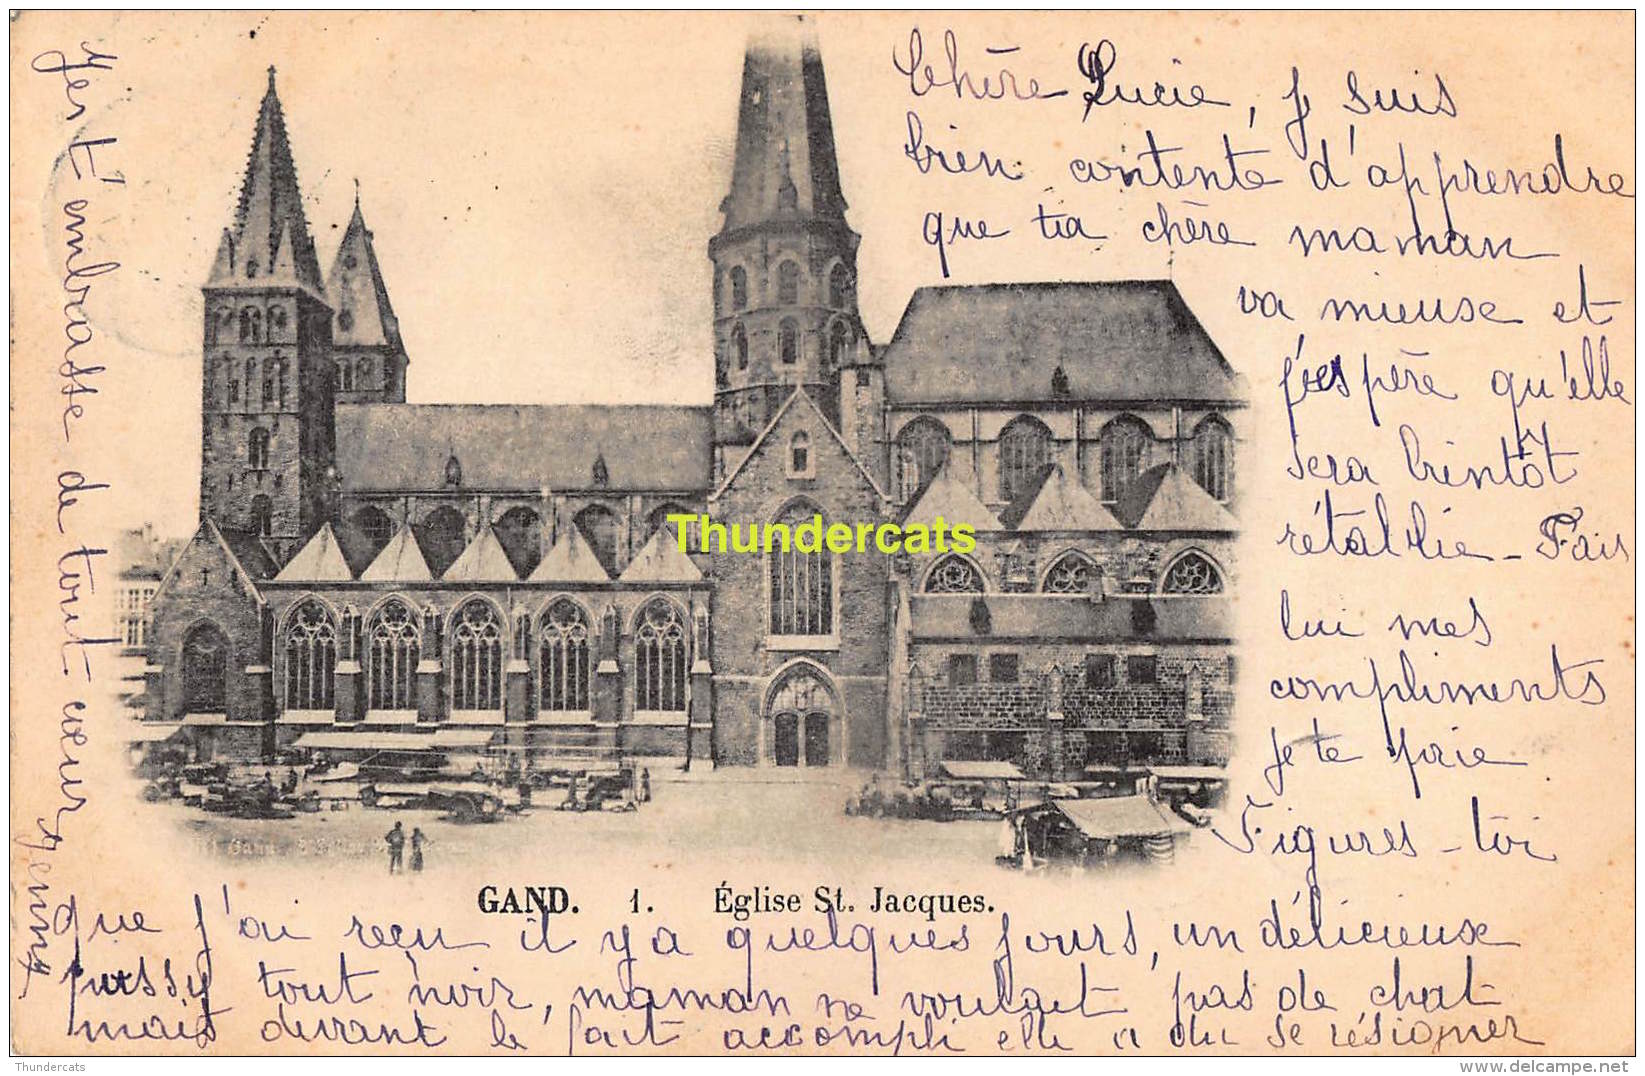 Chère Lucie, je suis
bien contente d'apprendre
que ta chère maman
va mieuse et
j'espère qu'elle
sera bientôt
rétablie - Fais
lui mes
compliments
je te prie
Figures-toi
GAND. 1. Église St. Jacques.
que j'ai reçu il y a quelques jours, un délicieuse
pussy tout noir, maman ne voulait pas de chat
mais devant le fait accompli elle a du se résigner
t'embrasse de tout cœur
Jenny
Thundercats
Thundercats
delcampe.net